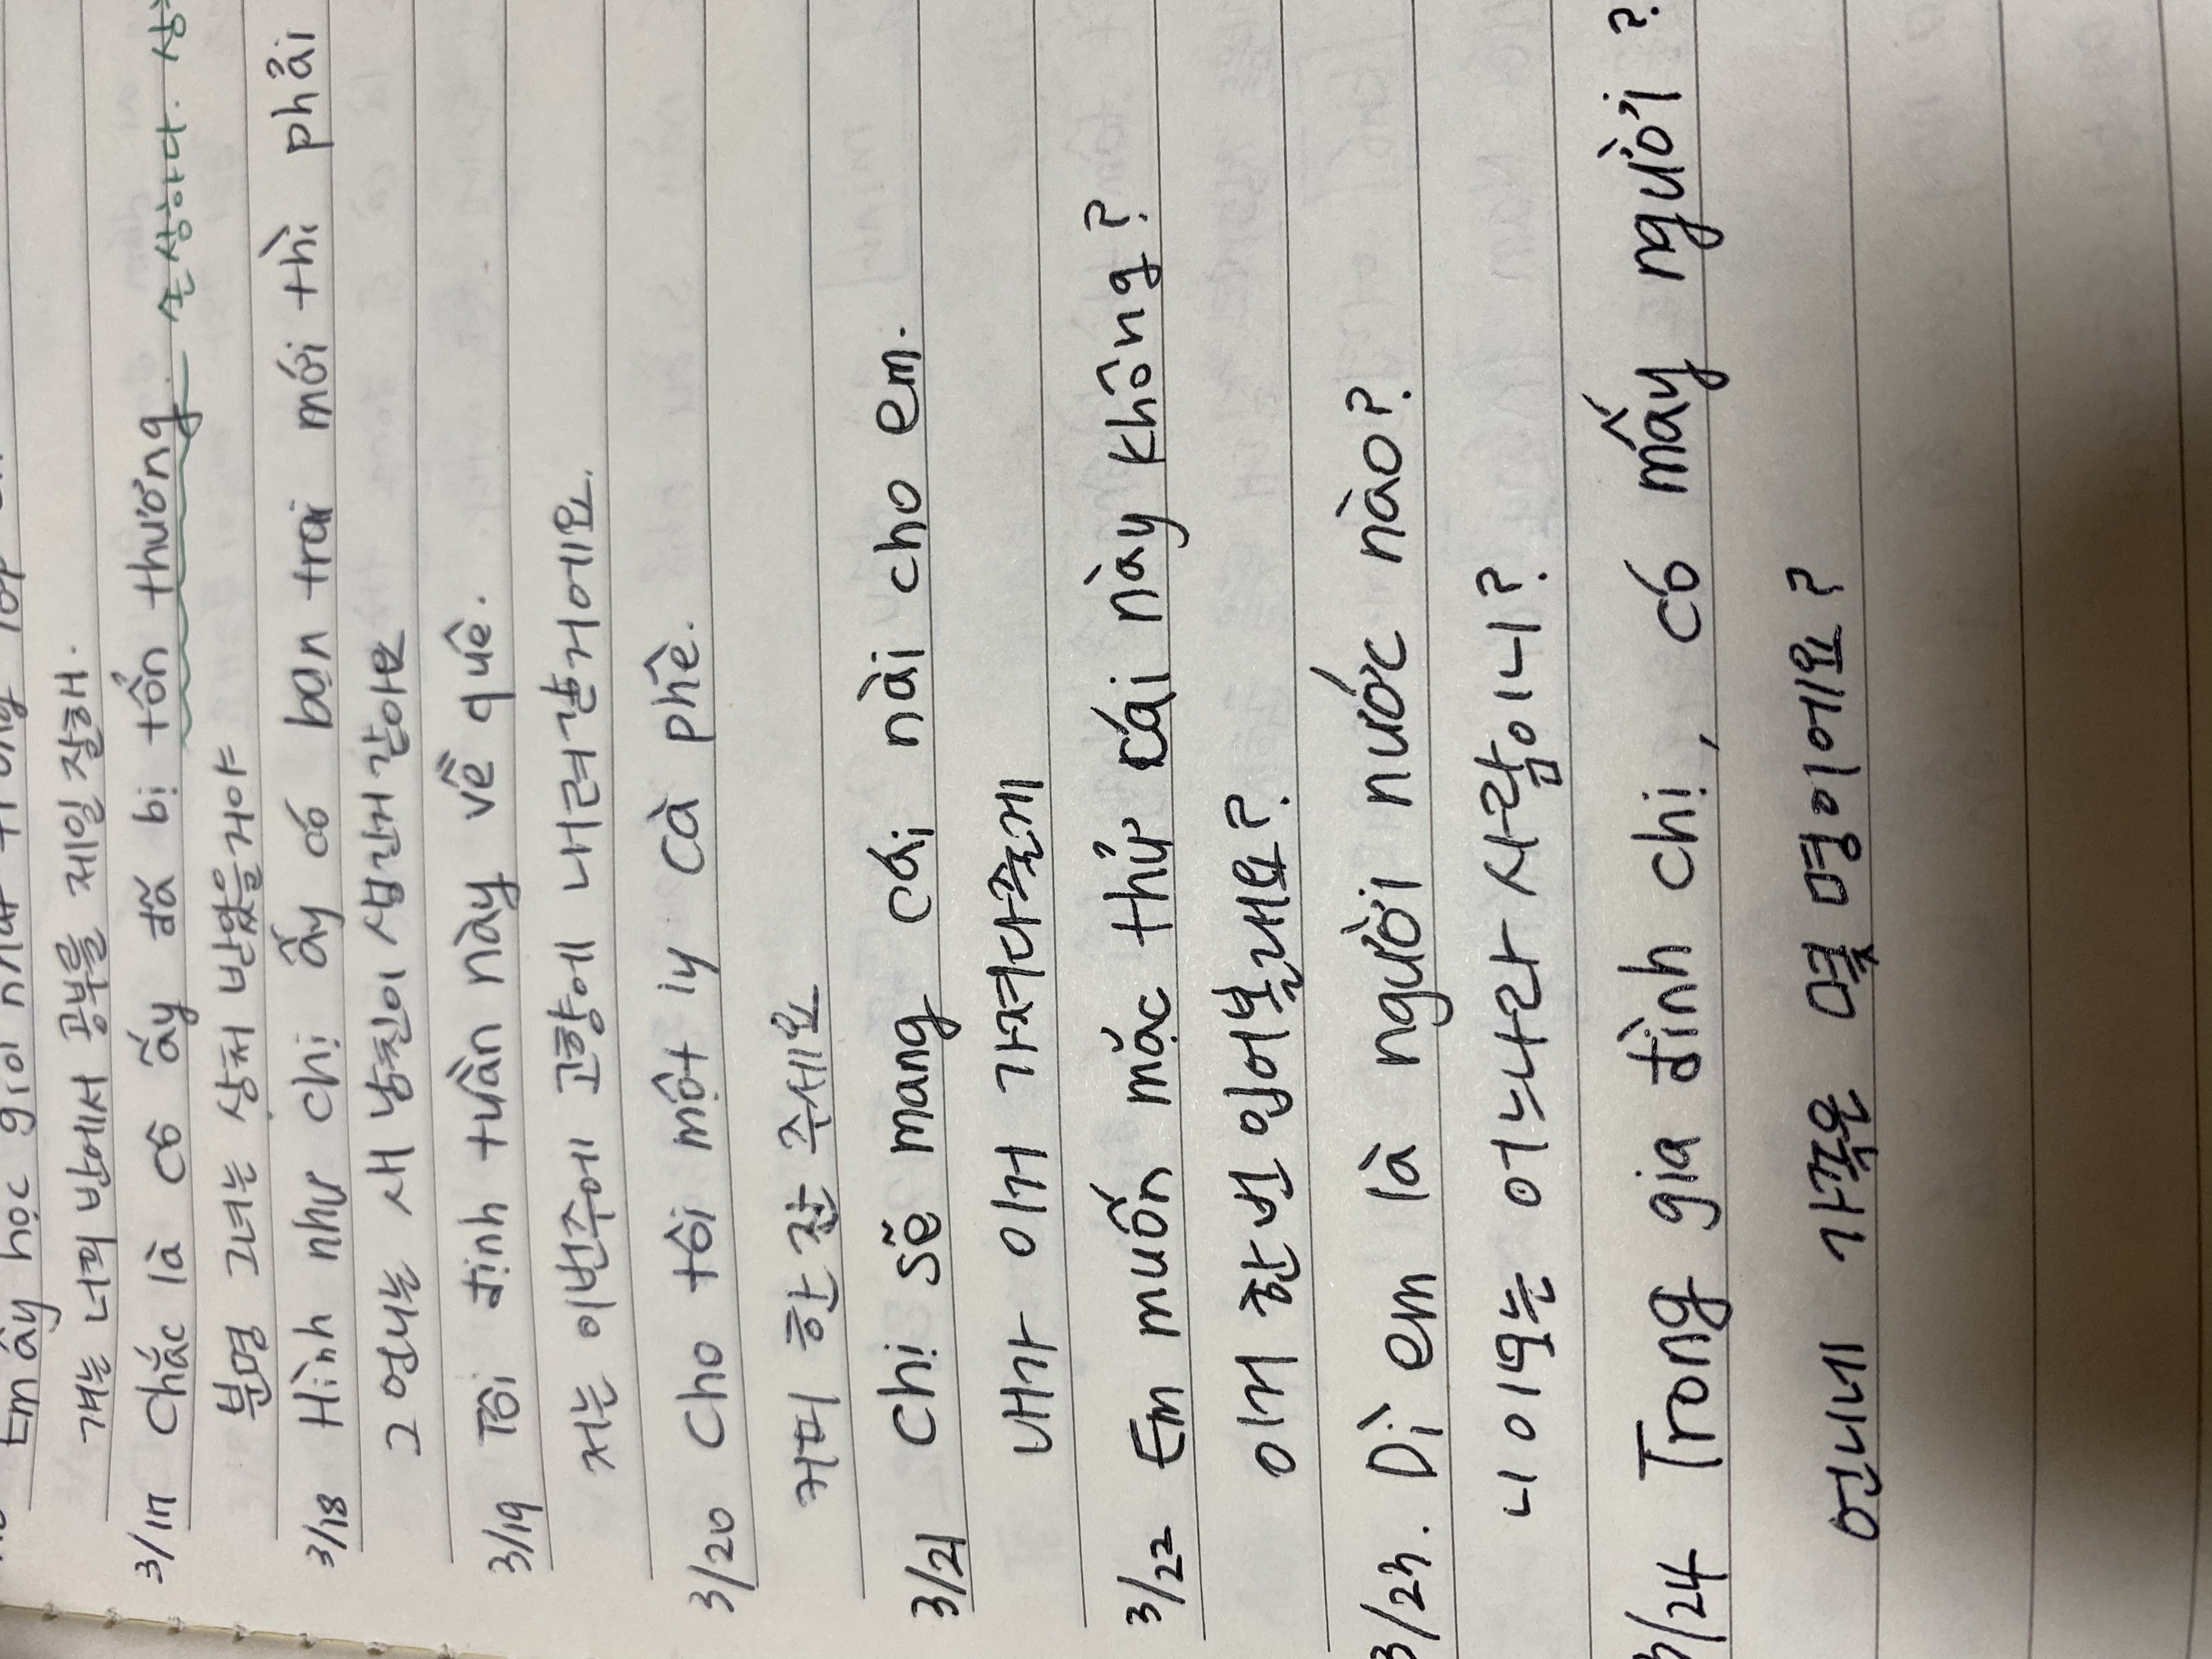 Em ấy học giỏi nhất
걔는 너희 반에서 공부를 제일 잘해.
3/17 Chắc là cô ấy đã bị tổn thương. 손상하다.
분명 그녀는 상처 받았을거야
3/18 Hình như chị ấy có bạn trai mới thì phải
그 언니는 새 남친이 생긴게 같아요
3/19 Tôi định tuần này về quê.
저는 이번주에 고향에 내려갈거에요.
3/20 Cho tôi một ly cà phê.
커피 한 잔 주세요
3/21 Chị sẽ mang cái nài cho em.
내가 이거 가져다줄게
3/22 Em muốn mặc thử cái này không?
이거 한 번 입어볼래요?
3/23. Dì em là người nước nào?
니 이모는 어느나라 사람이니?
3/24 Trong gia đình chị, có mấy người?
언니네 가족은 몇 명이에요?